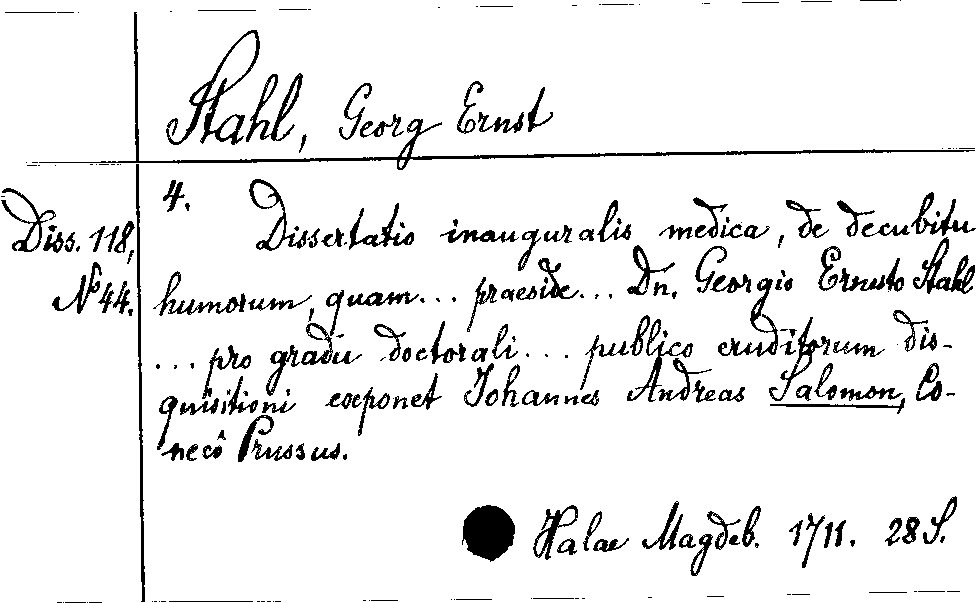 Stahl, Georg Ernst
4.
Diss. 118,
No 44.
Dissertatio inauguralis medica, de decubitu
humorum, quam... praeside... Dn. Georgio Ernesto Stahl
... pro gradu doctorali... publico eruditorum dis-
quisitioni exponet Iohannes Andreas Salomon, Co-
necô Prussus.
Halae Magdeb. 1711. 28 S.